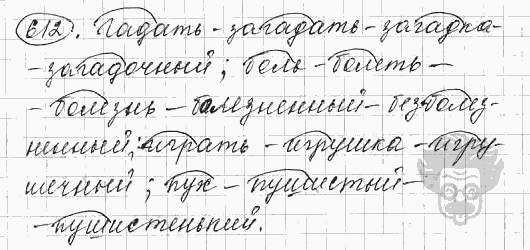 612. Гадать - загадать - загадка -
- загадочный; боль - болеть -
- болезнь - болезненный - безболез-
ненный; играть - игрушка - игру-
шечный; пух - пушистый -
- пушистенький.